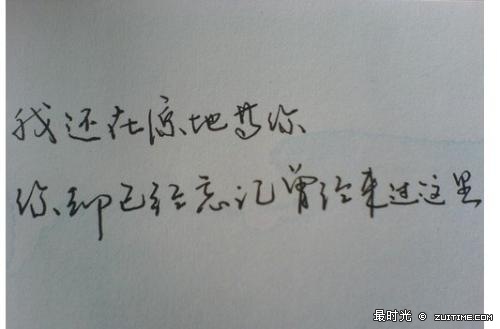 我还在原地等你
你却已经忘记曾经来过这里
最时光 © ZUITIME.COM